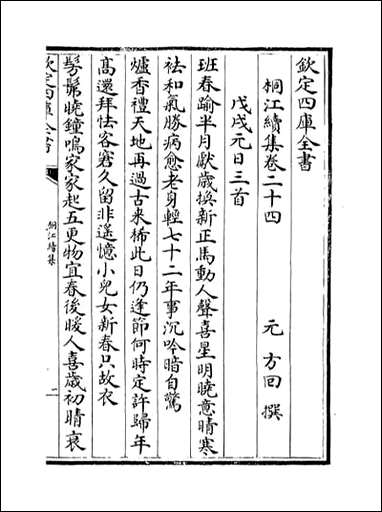 欽定四庫全書
桐江續集卷二十四
元 方回 撰
戊戌元日三首
班春踰半月獻歲換新正馬動人聲喜星明曉意晴寒
祛和氣勝病愈老身輕七十二年事沉吟暗自驚
爐香禮天地再過古来稀此日仍逢節何時定許歸年
髙還拜怯客窘久留非遙憶小兒女新春只故衣
髣髴曉鐘鳴家家起五更物宜春後暖人喜歲初晴衰
欽定四庫全書
桐江續集
一